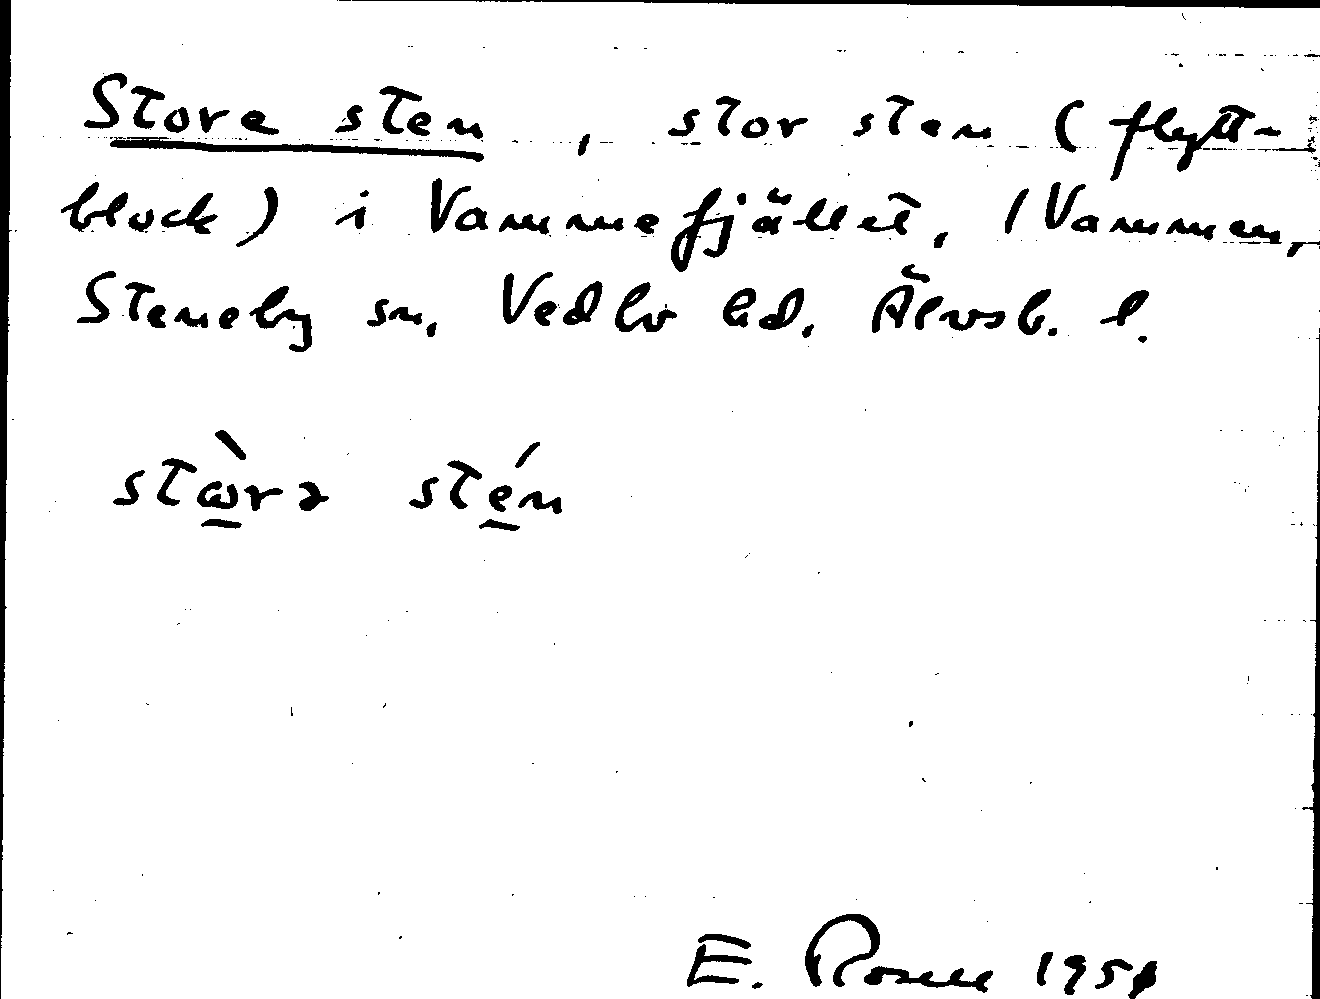 Store sten, stor sten (flytt-
block) i Vammefjället, 1 Vammen,
Steneby sn, Vedbo hd, Älvsb. l.
stὼrə stén
E.